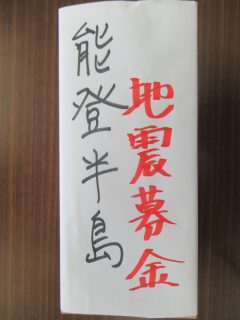 能登半島
地震募金